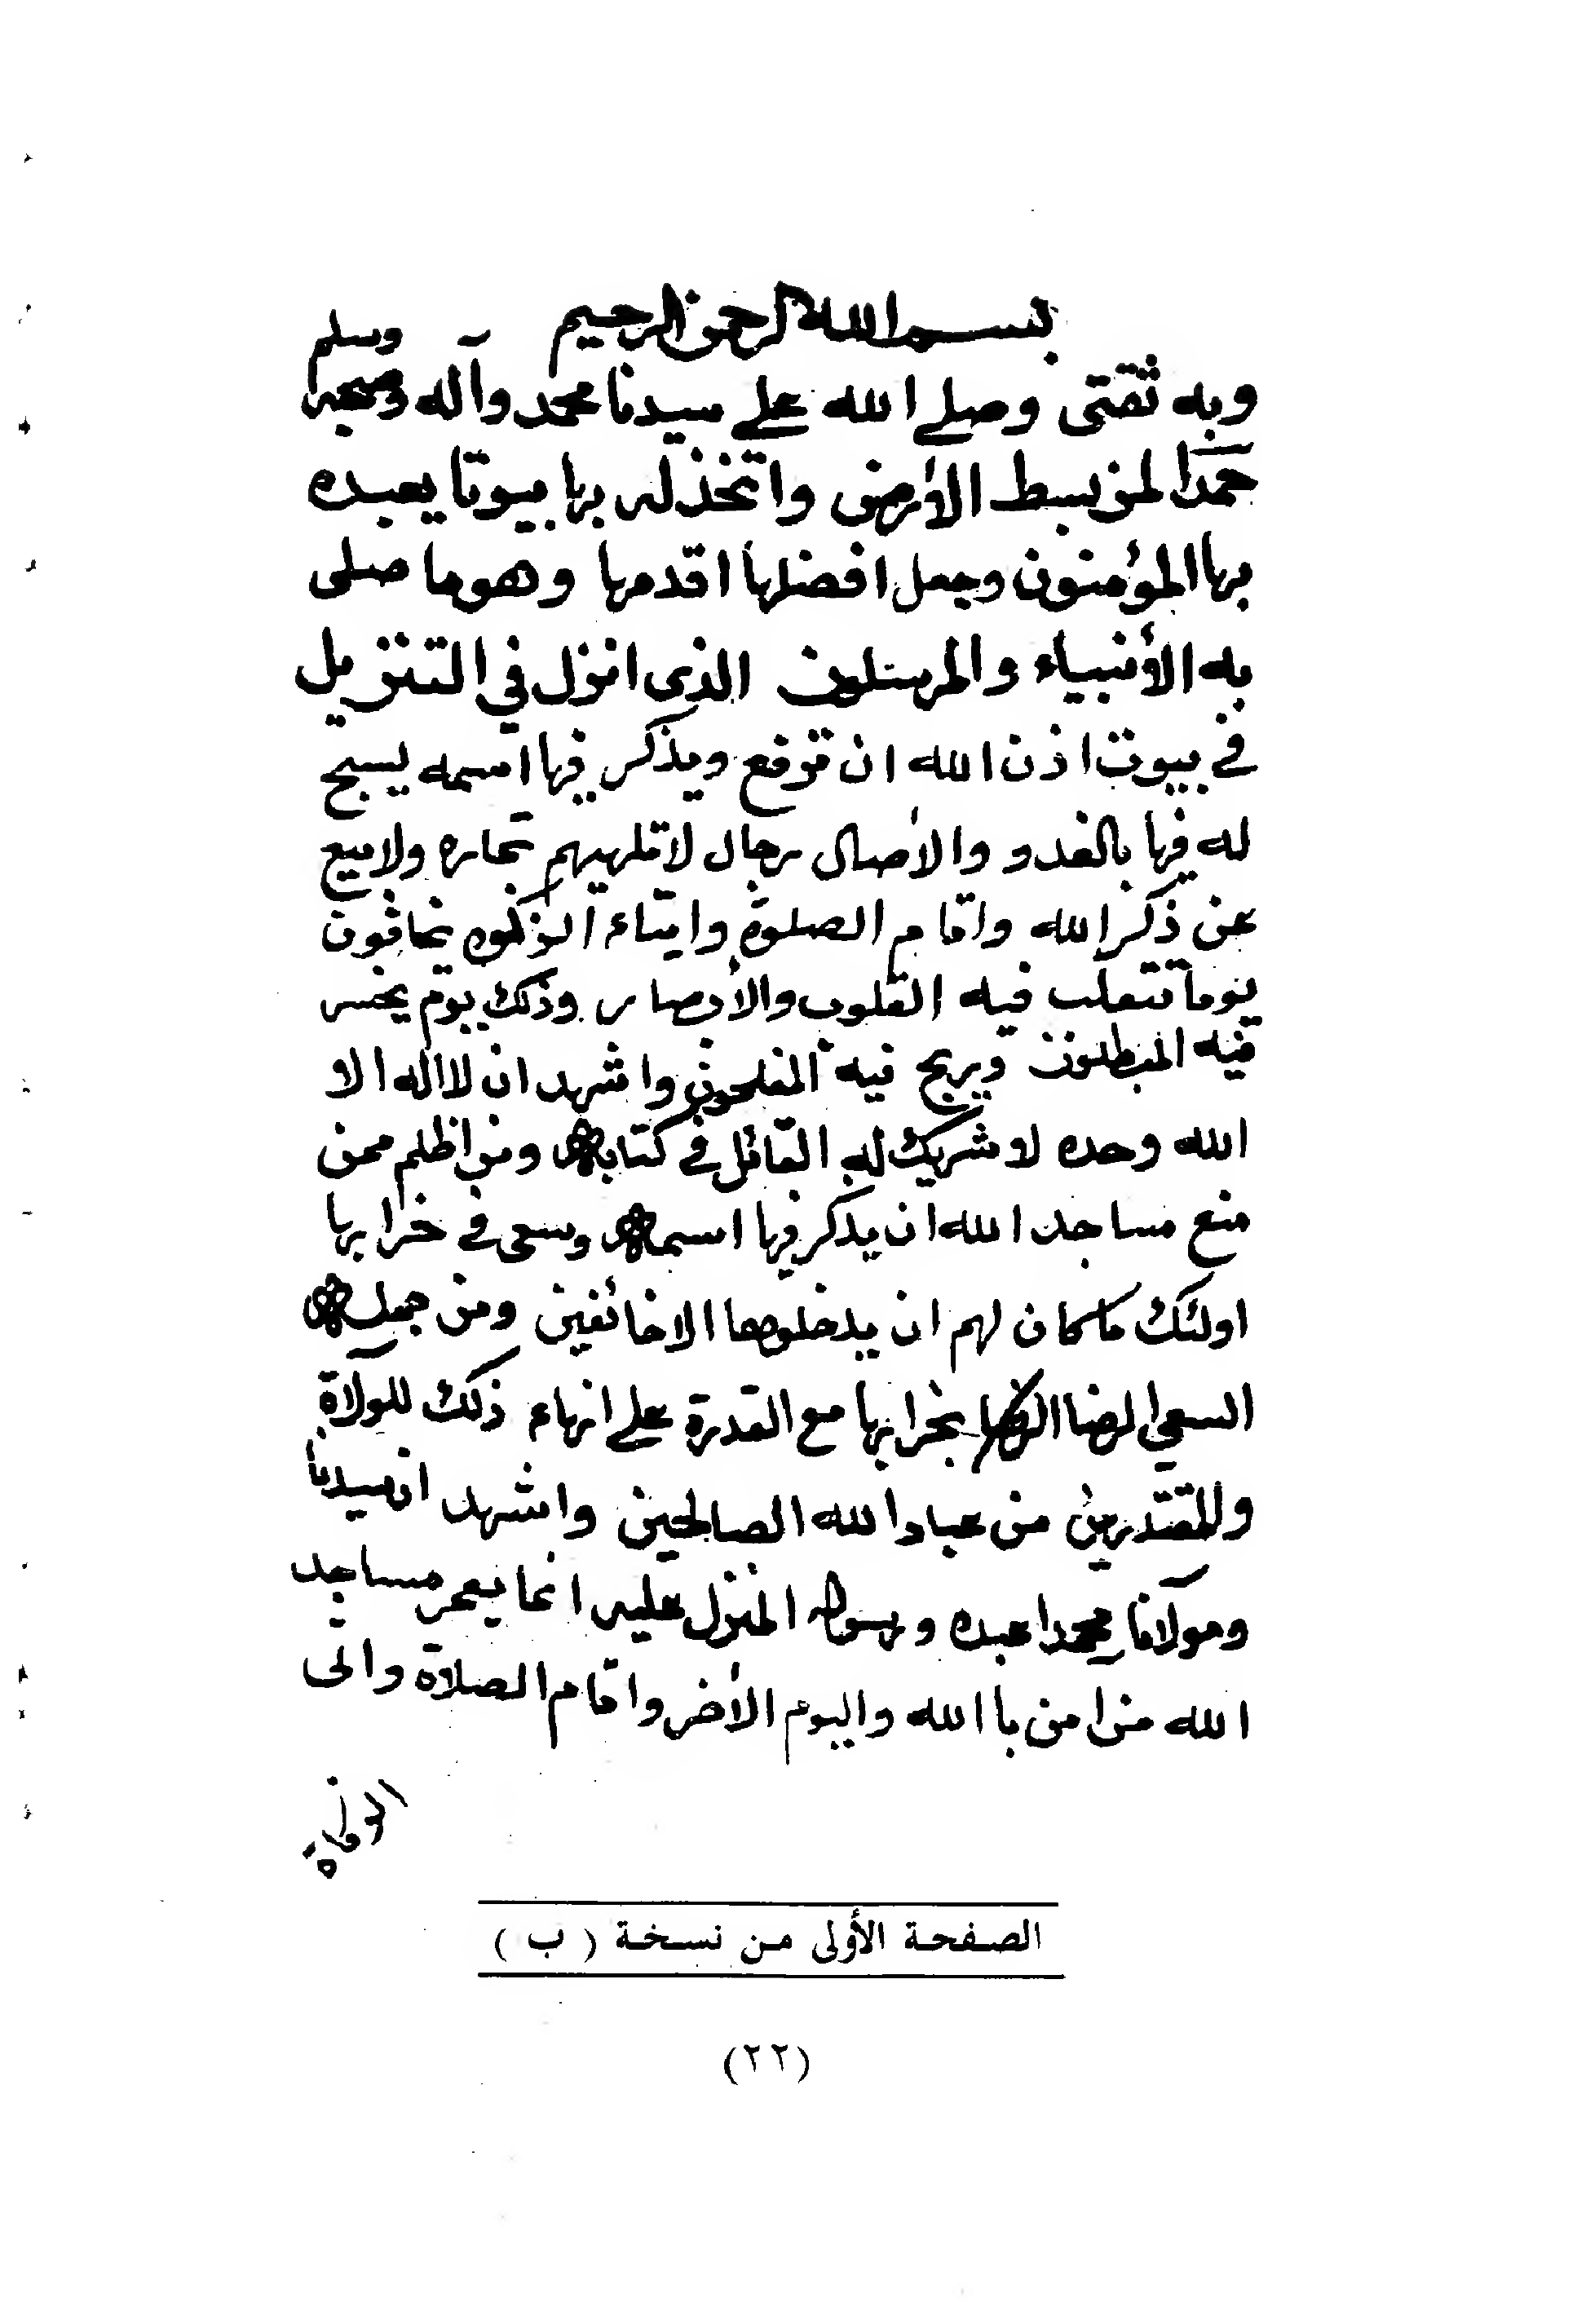 بسم الله الرحمن الرحيم
وبه ثقتى وصلى الله على سيدنا محمد وآله وصحبه وسلم
حمدا لمن بسط الأرض واتخذ له بها بيوتا يعبده
بها المؤمنون وجعل افضلها اقدمها وهو ما صلى
به الأنبياء والمرسلون الذى انزل في التنزيل
في بيوت اذن الله ان ترفع ويذكر فيها اسمه يسبح
له فيها بالغدو والأصال رجال لا تلهيهم تجاره ولا بيع
عن ذكر الله واقام الصلوة وايتاء الزكوه يخافون
يوما تتقلب فيه القلوب والأبصار وذلك يوم يخسر
فيه المبطلون ويربح فيه المفلحون واشهد ان لا اله الا
الله وحده لا شريك له القائل في كتابه ومن اظلم ممن
منع مساجد الله ان يذكر فيها اسمه وسعى في خرابها
اولئك ما كان لهم ان يدخلوها الا خائفين ومن جعل
السعي الرضا بخرابها مع القدرة على انهاء ذلك للولاة
وللمقتدرين من عباد الله الصالحين واشهد ان سيدنا
ومولانا محمدا عبده ورسوله المنزل عليه انما يعمر مساجد
الله من امن باالله واليوم الأخر واقام الصلاة واتى
الزكاة
الصفحة الأولى من نسخة ( ب )
(٢٢)